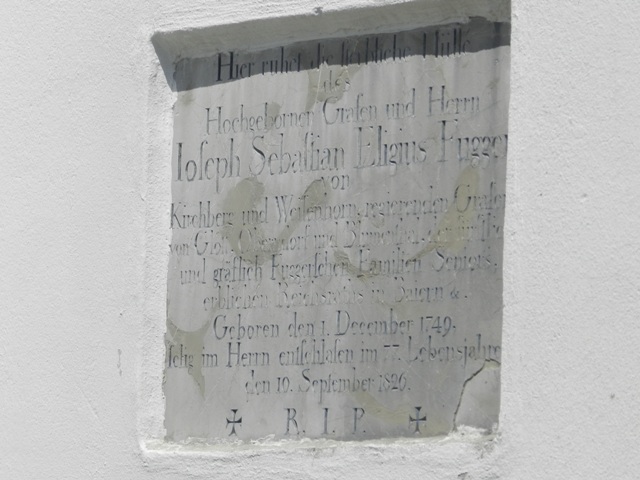 Hier ruhet die sterbliche Hülle
des
Hochgebornen Grafen und Herrn
Joseph Sebastian Eligius Fugger
von
Kirchberg und Weisenhorn, regierenden Grafen
von Glött, Oberndorf und
und gräflich Fuggerschen Familien Seniors,
erblichen Reichsraths in Baiern &.
Geboren den 1. December 1749.
selig im Herrn entschlafen im 77. Lebensjahre
den 19. September 1826.
R. I. P.